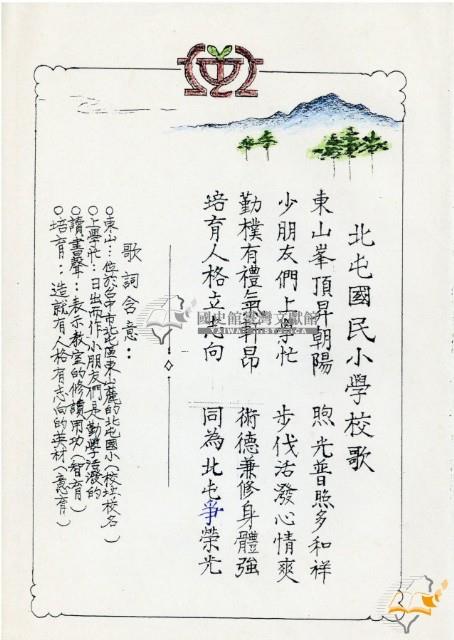 北屯國民小學校歌
東山峯頂昇朝陽 煦光普照多和祥
少朋友們上學忙 步伐活潑心情爽
勤樸有禮氣軒昂 術德兼修身體強
培育人格立志向 同為北屯爭榮光
歌詞含意：
○東山：位於台中市北屯區東山麓的北屯國小（校址校名）
○上學忙：日出而作小朋友們是勤學活潑的
○讀書聲：表示教室的修讀用功（智育）
○培育：造就有人格有志向的英材（意育）
國史館臺灣文獻館
TAIWAN HISTORICA